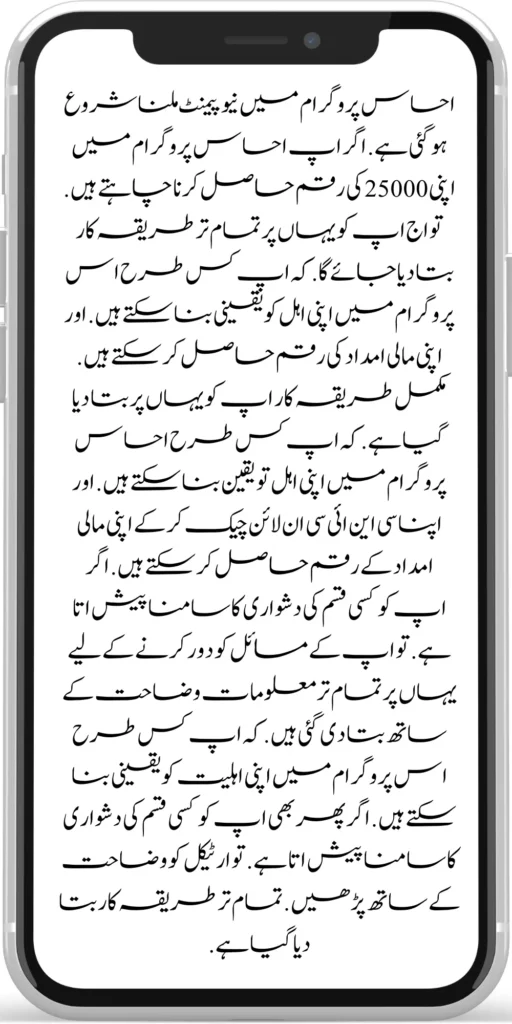 احساس پروگرام میں نیو پیمنٹ ملنا شروع
ہو گئی ہے. اگر اپ احساس پروگرام میں
اپنی 25000 کی رقم حاصل کرنا چاہتے ہیں.
تو اج اپ کو یہاں پر تمام تر طریقہ کار
بتا دیا جائے گا. کہ اپ کس طرح اس
پروگرام میں اپنی اہل کو یقینی بنا سکتے ہیں. اور
اپنی مالی امداد کی رقم حاصل کر سکتے ہیں.
مکمل طریقہ کار اپ کو یہاں پر بتا دیا
گیا ہے. کہ اپ کس طرح احساس
پروگرام میں اپنی اہل تو یقین بنا سکتے ہیں. اور
اپنا سی این ائی سی ان لائن چیک کر کے اپنی مالی
امداد کے رقم حاصل کر سکتے ہیں. اگر
اپ کو کسی قسم کی دشواری کا سامنا پیش اتا
ہے. تو اپ کے مسائل کو دور کرنے کے لیے
یہاں پر تمام تر معلومات وضاحت کے
ساتھ بتا دی گئی ہیں. کہ اپ کس طرح
اس پروگرام میں اپنی اہلیت کو یقینی بنا
سکتے ہیں. اگر پھر بھی اپ کو کسی قسم کی دشواری
کا سامنا پیش اتا ہے. تو ارٹیکل کو وضاحت
کے ساتھ پڑھیں. تمام تر طریقہ کار بتا
دیا گیا ہے.